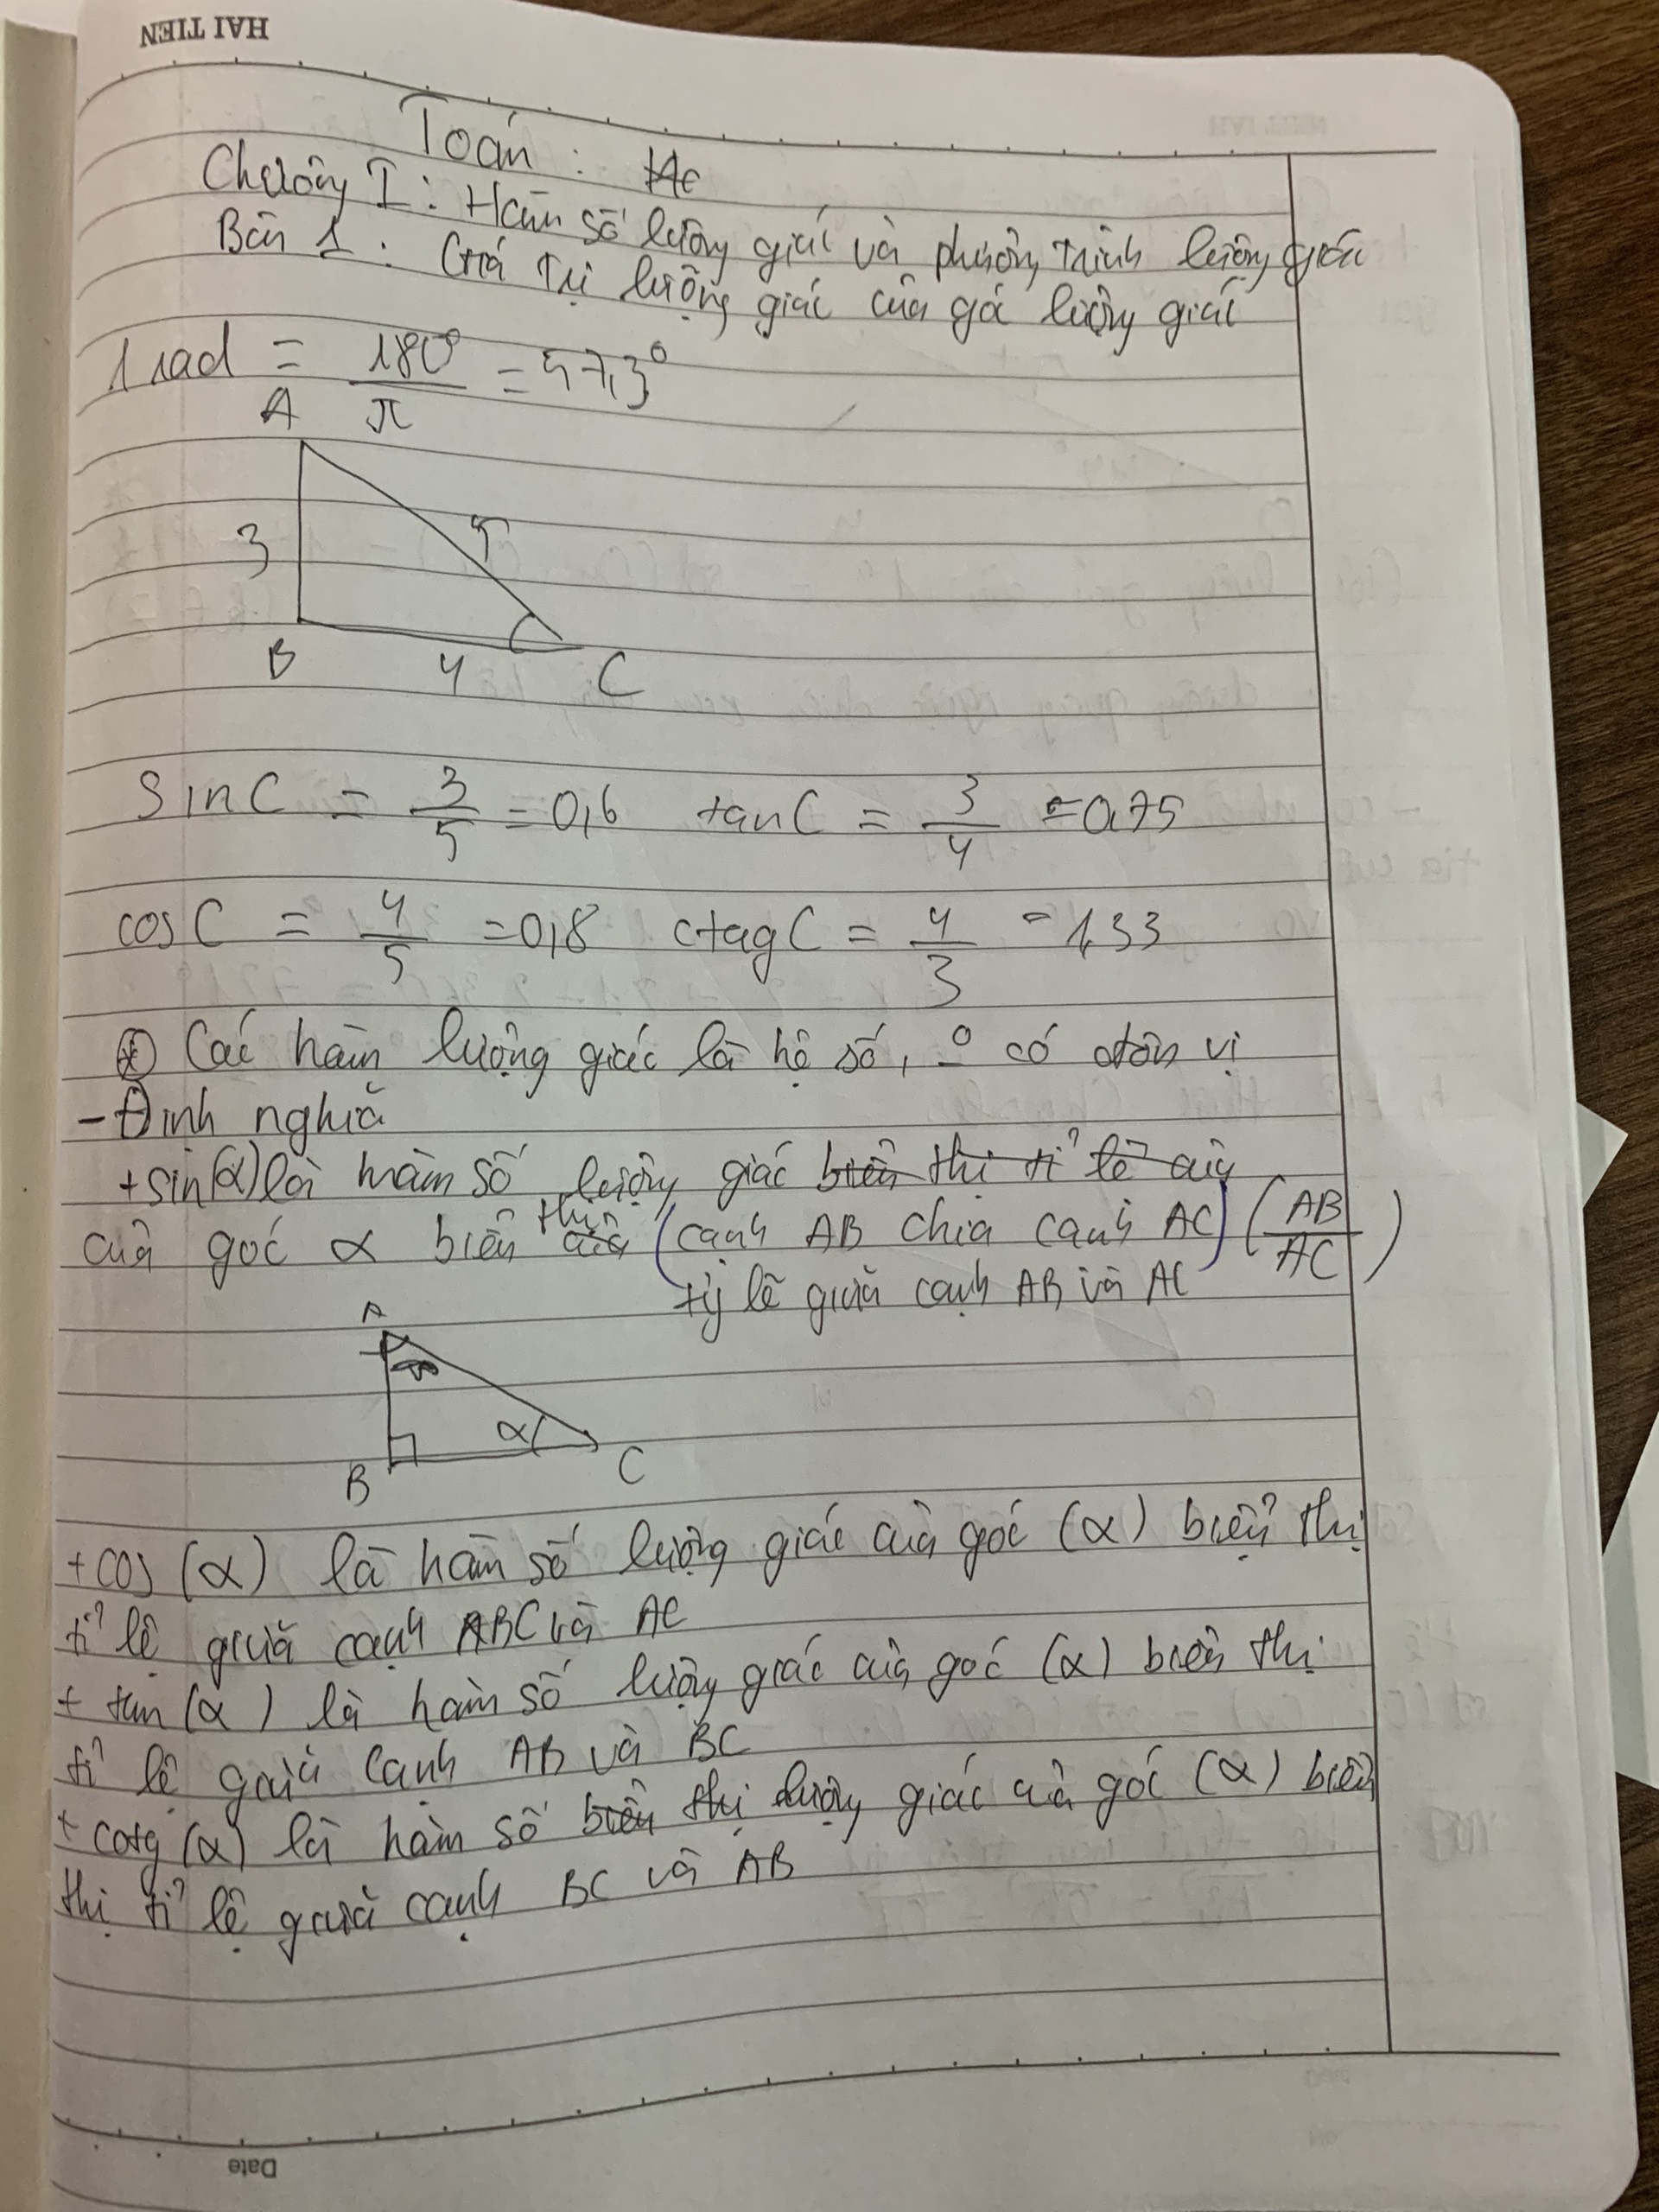 HAI TIEN
Toán :
Chương I : Hàm số lượng giác và phương trình lượng giác
Bài 1 : Giá trị lượng giác của gó lượng giác
1 rad = 180° / π = 57,3°
A
3
5
B
4
C
sin C = 3/5 = 0,6 tan C = 3/4 = 0,75
cos C = 4/5 = 0,8 ctag C = 4/3 = 1,33
⊛ Các hàm lượng giác là hệ số, _o có đơn vị
- Định nghĩa
+ sin(α) là hàm số lượng giác biểu thị tỉ lệ của
của góc α biểu thị của (cạnh AB chia cạnh AC) (AB/AC)
tỷ lệ giữa cạnh AB và AC
A
α
B
C
+ cos (α) là hàm số lượng giác của góc (α) biểu thị
tỉ lệ giữa cạnh BC và AC
+ tan (α) là hàm số lượng giác của góc (α) biểu thị
tỉ lệ giữa cạnh AB và BC
+ cotg (α) là hàm số biểu thị lượng giác của góc (α) biểu
thị tỉ lệ giữa cạnh BC và AB
Date